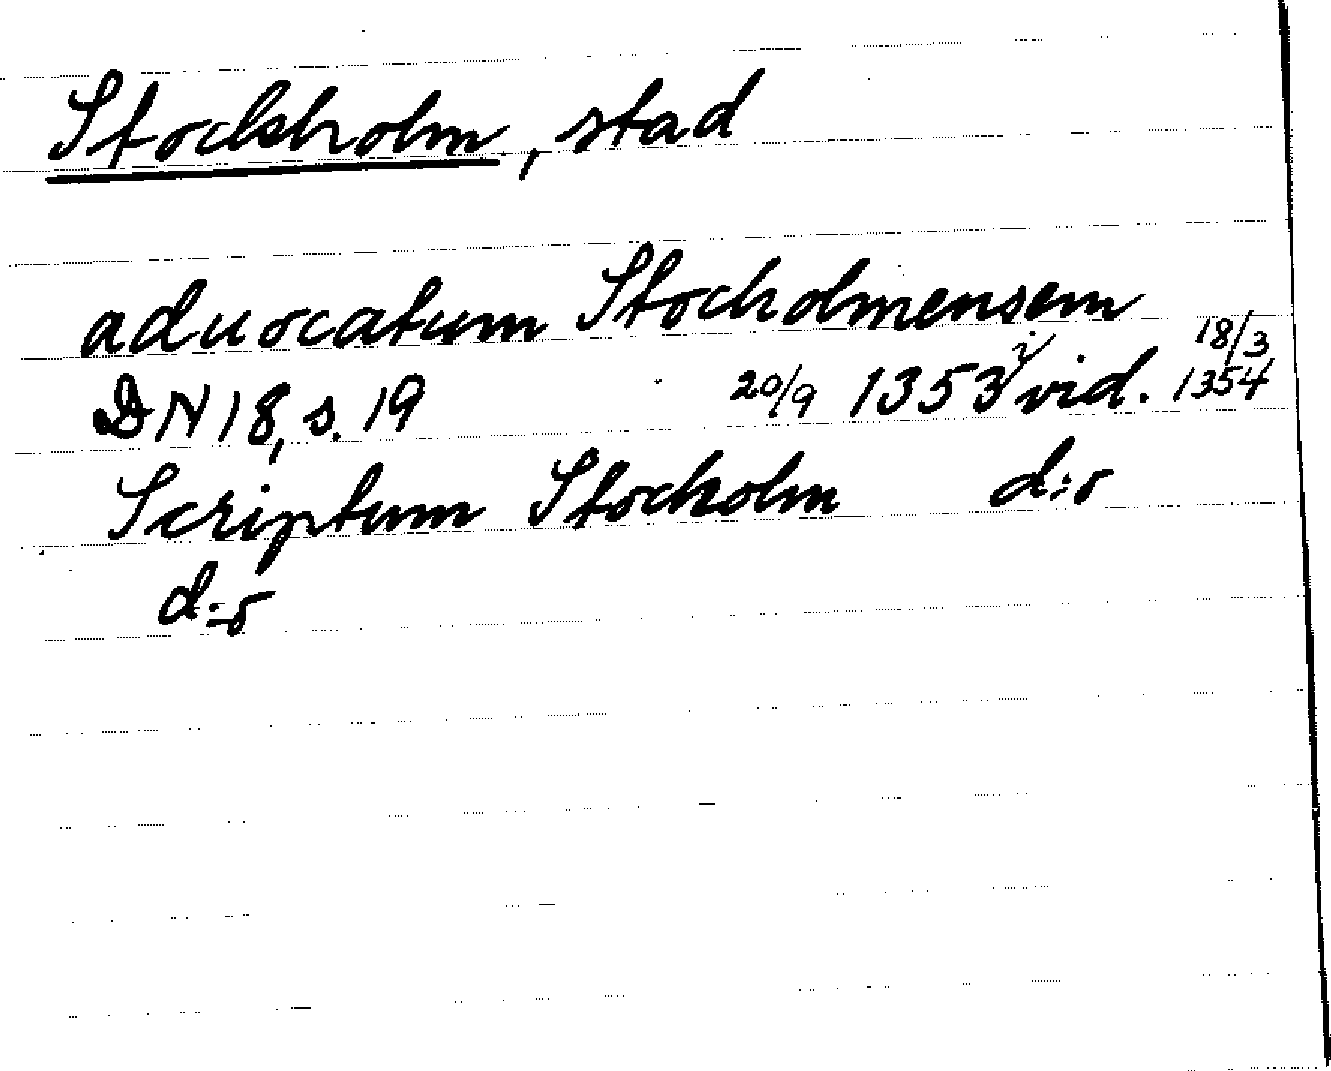 Stockholm, stad
aduocatum Stocholmensem
DN 18, s. 19 20/9 1353 i vid. 18/3 1354
Scriptum Stocholm d:o
d:o